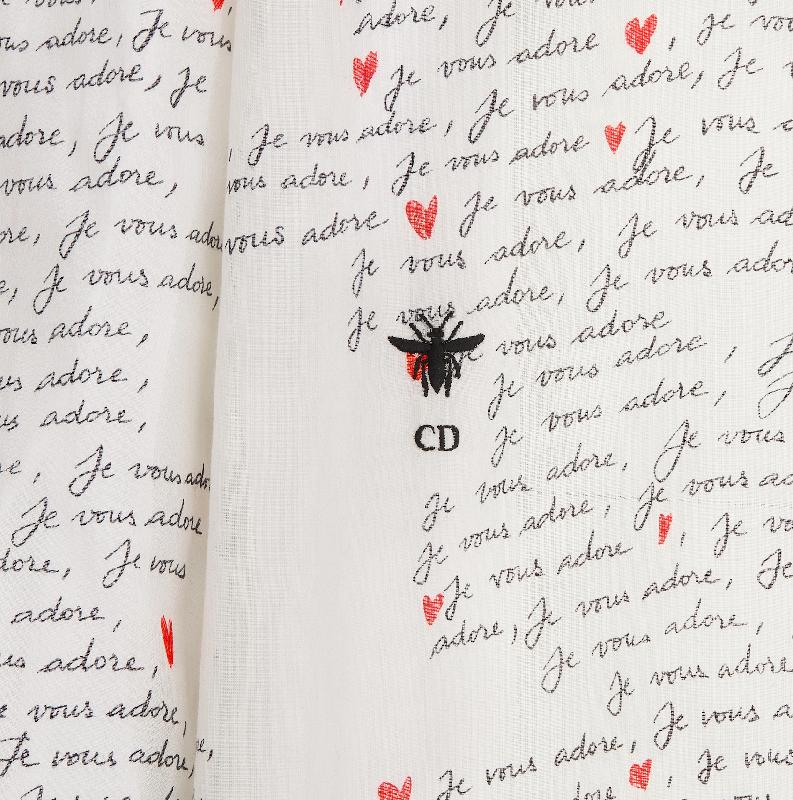 vous
adore,
vous adore, Je vous
adore, Je vous adore
vous adore, Je
Je vous adore, Je vous adore, Je
adore, Je vous
Je vous adore, Je vous adore Je vous
vous adore,
vous adore, Je vous adore, Je
Je vous adore
vous adore Je vous adore, Je
Je vous adore, Je vous
Je vous adore,
Je vous adore, Je vous adore
vous adore,
Je vous adore
adore,
Je vous adore, Je
adore,
Je vous adore,
CD
Je vous adore, Je vous
Je vous adore
Je vous adore, Je vous
Je vous adore
Je vous adore, Je vous adore
adore, Je vous
Je vous adore, Je vous
adore,
Je vous adore, Je
adore,
adore, Je vous adore, Je
vous adore,
Je vous adore,
Je vous adore,
Je vous adore
Je vous adore, Je vous
Je vous adore, Je vous